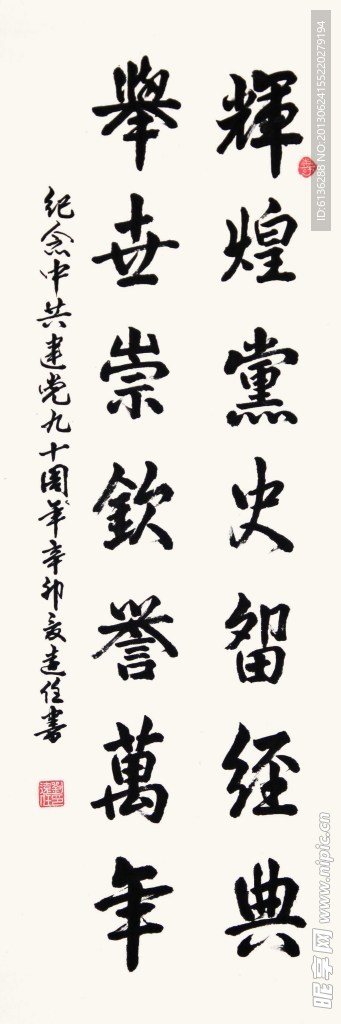 輝煌黨史留經典
舉世崇欽譽萬年
纪念中共建党九十周年辛卯夏连任书
ID:6136288 NO:20130624155220279194
昵享网 www.nipic.cn